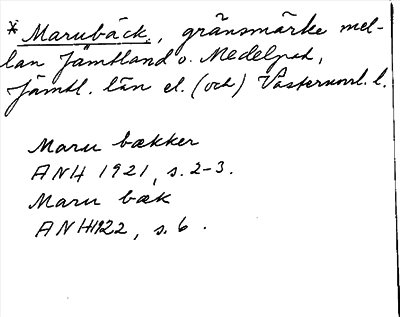 * Marubäck, gränsmärke mel-
lan Jämtland o. Medelpad,
Jämtl. län el. (och) Västernorrl. l.
Maru bækker
ANH 1921, s. 2-3.
Maru bæk
ANH 1922, s. 6.